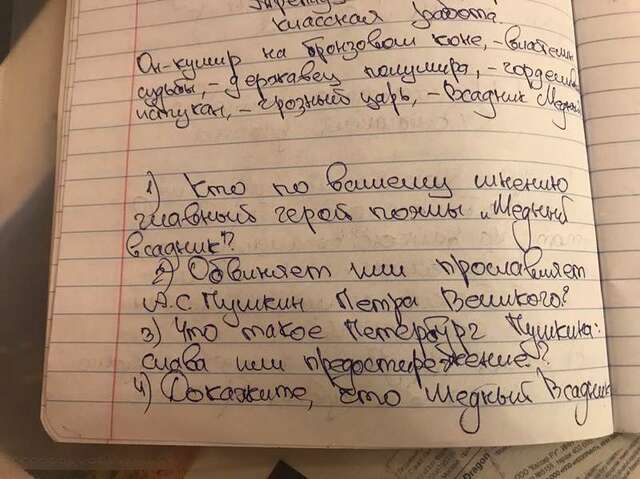 Классная работа.
Он-кумир на бронзовом коне, - властелин
судьбы, - державец полумира, - горделив
истукан, - грозный царь, - Всадник Медный
1) Кто по вашему мнению
главный герой поэмы „Медный
всадник"?
2) Обвиняет или прославляет
А.С. Пушкин Петра Великого?
3) Что такое Петербург Пушкина:
слава или предостережение?
4) Докажите, что Медный Всадник
Dragon